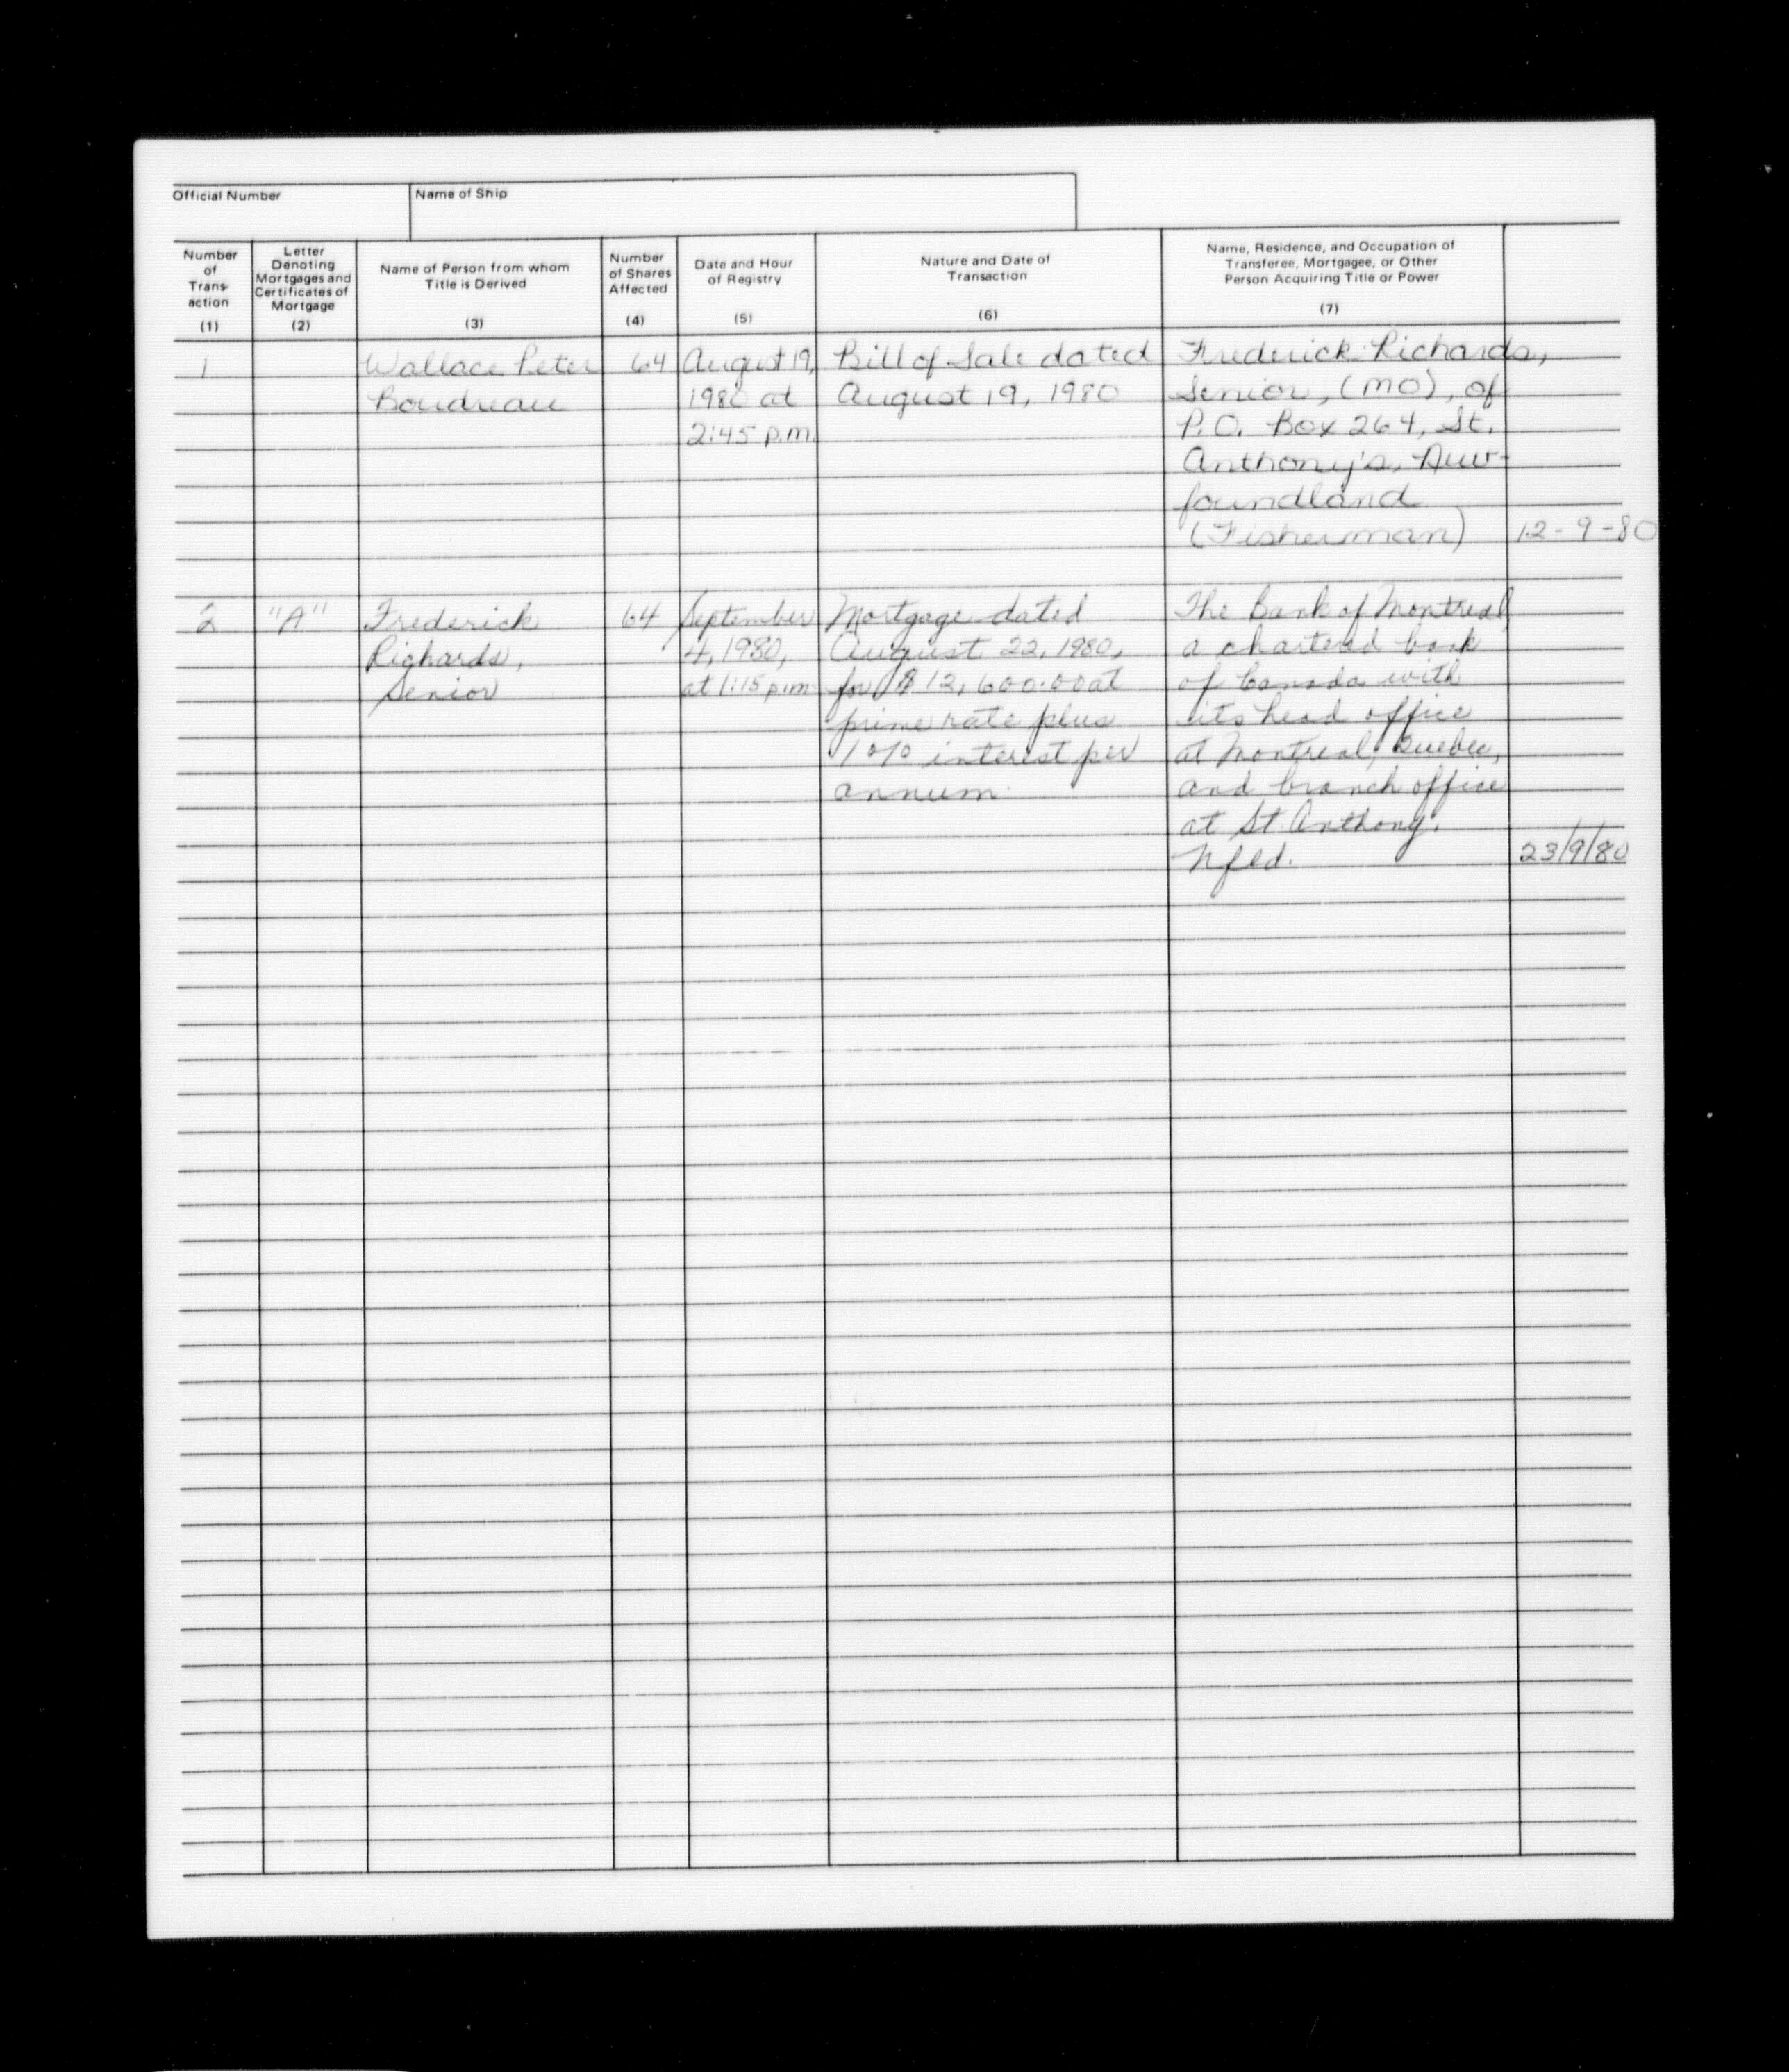 Official Number
Name of Ship
Number of Trans-action (1)
Letter Denoting Mortgages and Certificates of Mortgage (2)
Name of Person from whom Title is Derived (3)
Number of Shares Affected (4)
Date and Hour of Registry (5)
Nature and Date of Transaction (6)
Name, Residence, and Occupation of Transferee, Mortgagee, or Other Person Acquiring Title or Power (7)
1 Wallace Peter 64 August 19, Bill of Sale dated Frederick Richards,
Boudreau 1980 at August 19, 1980 Senior, (MO), of
2:45 p.m. P.O. Box 264, St.
Anthony's, New-
foundland
(Fisherman) 12-9-80
2 "A" Frederick 64 September Mortgage dated The Bank of Montreal,
Richards, 4, 1980, August 22, 1980, a chartered bank
Senior at 1:15 p.m. for $12,600.00 at of Canada with
prime rate plus its head office
1% interest per at Montreal, Quebec,
annum. and branch office
at St. Anthony,
Nfld. 23/9/80